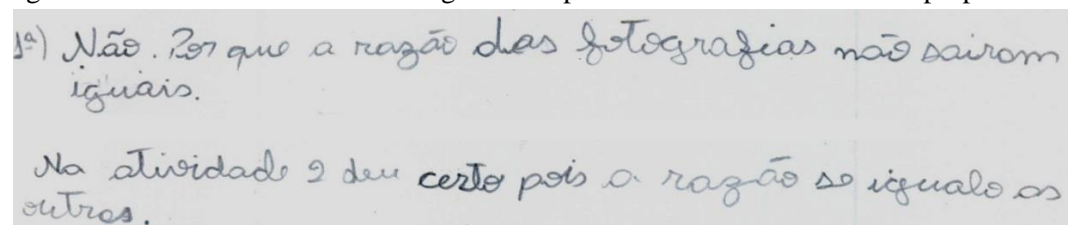 1ª) Não. Por que a razão das fotografias não sairam
iguais.
Na atividade 2 deu certo pois a razão se igualo as
outras.